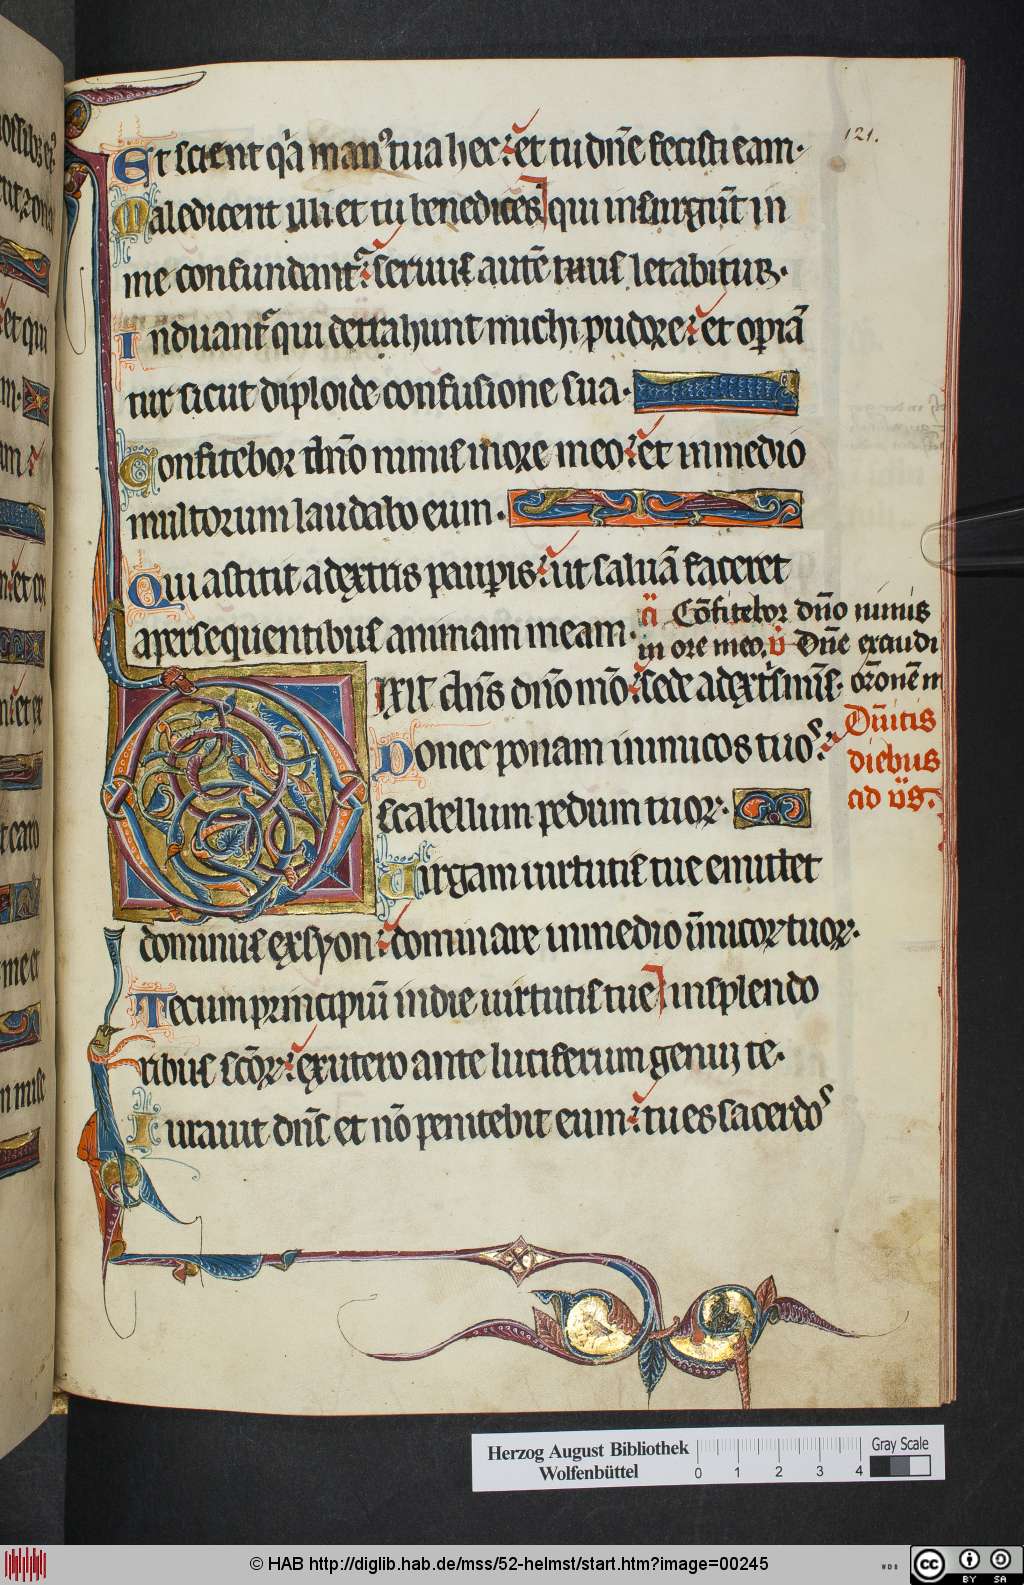 121.
Et scient q̾a man᾿ tua hec: et tu dn̄e fecisti eam.
Maledicent illi et tu benedices qui insurgūt in
me confundant᷑: seruus autē tuus letabitur.
Induant᷑ qui detrahunt michi pudore: et opiā
tur sicut diploide confusione sua.
Confitebor dn̄o nimis in ore meo: et in medio
multorum laudabo eum.
Qui astitit a dextris paup̄is: ut saluā faceret
a persequentibus animam meam.
a Cōfitebor dn̄o nimis
in ore meo. v Dn̄e exaudi
or̄onem m
DIXIT dn̄s dn̄o mō: sede a dextr̄ meis.
Dn̄icis
diebus
ad v̄s.
Donec ponam inimicos tuos:
Scabellum pedum tuoꝝ.
Uirgam uirtutis tue emittet
dominus ex syon: dominare in medio īnimicoꝝ tuoꝝ.
Tecum principiū in die uirtutis tue in splendo
ribus scōꝝ: ex utero ante luciferum genui te.
Iurauit dn̄s et nō penitebit eum: tu es sacerdos
Herzog August Bibliothek
Wolfenbüttel
0 1 2 3 4
Gray Scale
© HAB http://diglib.hab.de/mss/52-helmst/start.htm?image=00245
cc BY SA